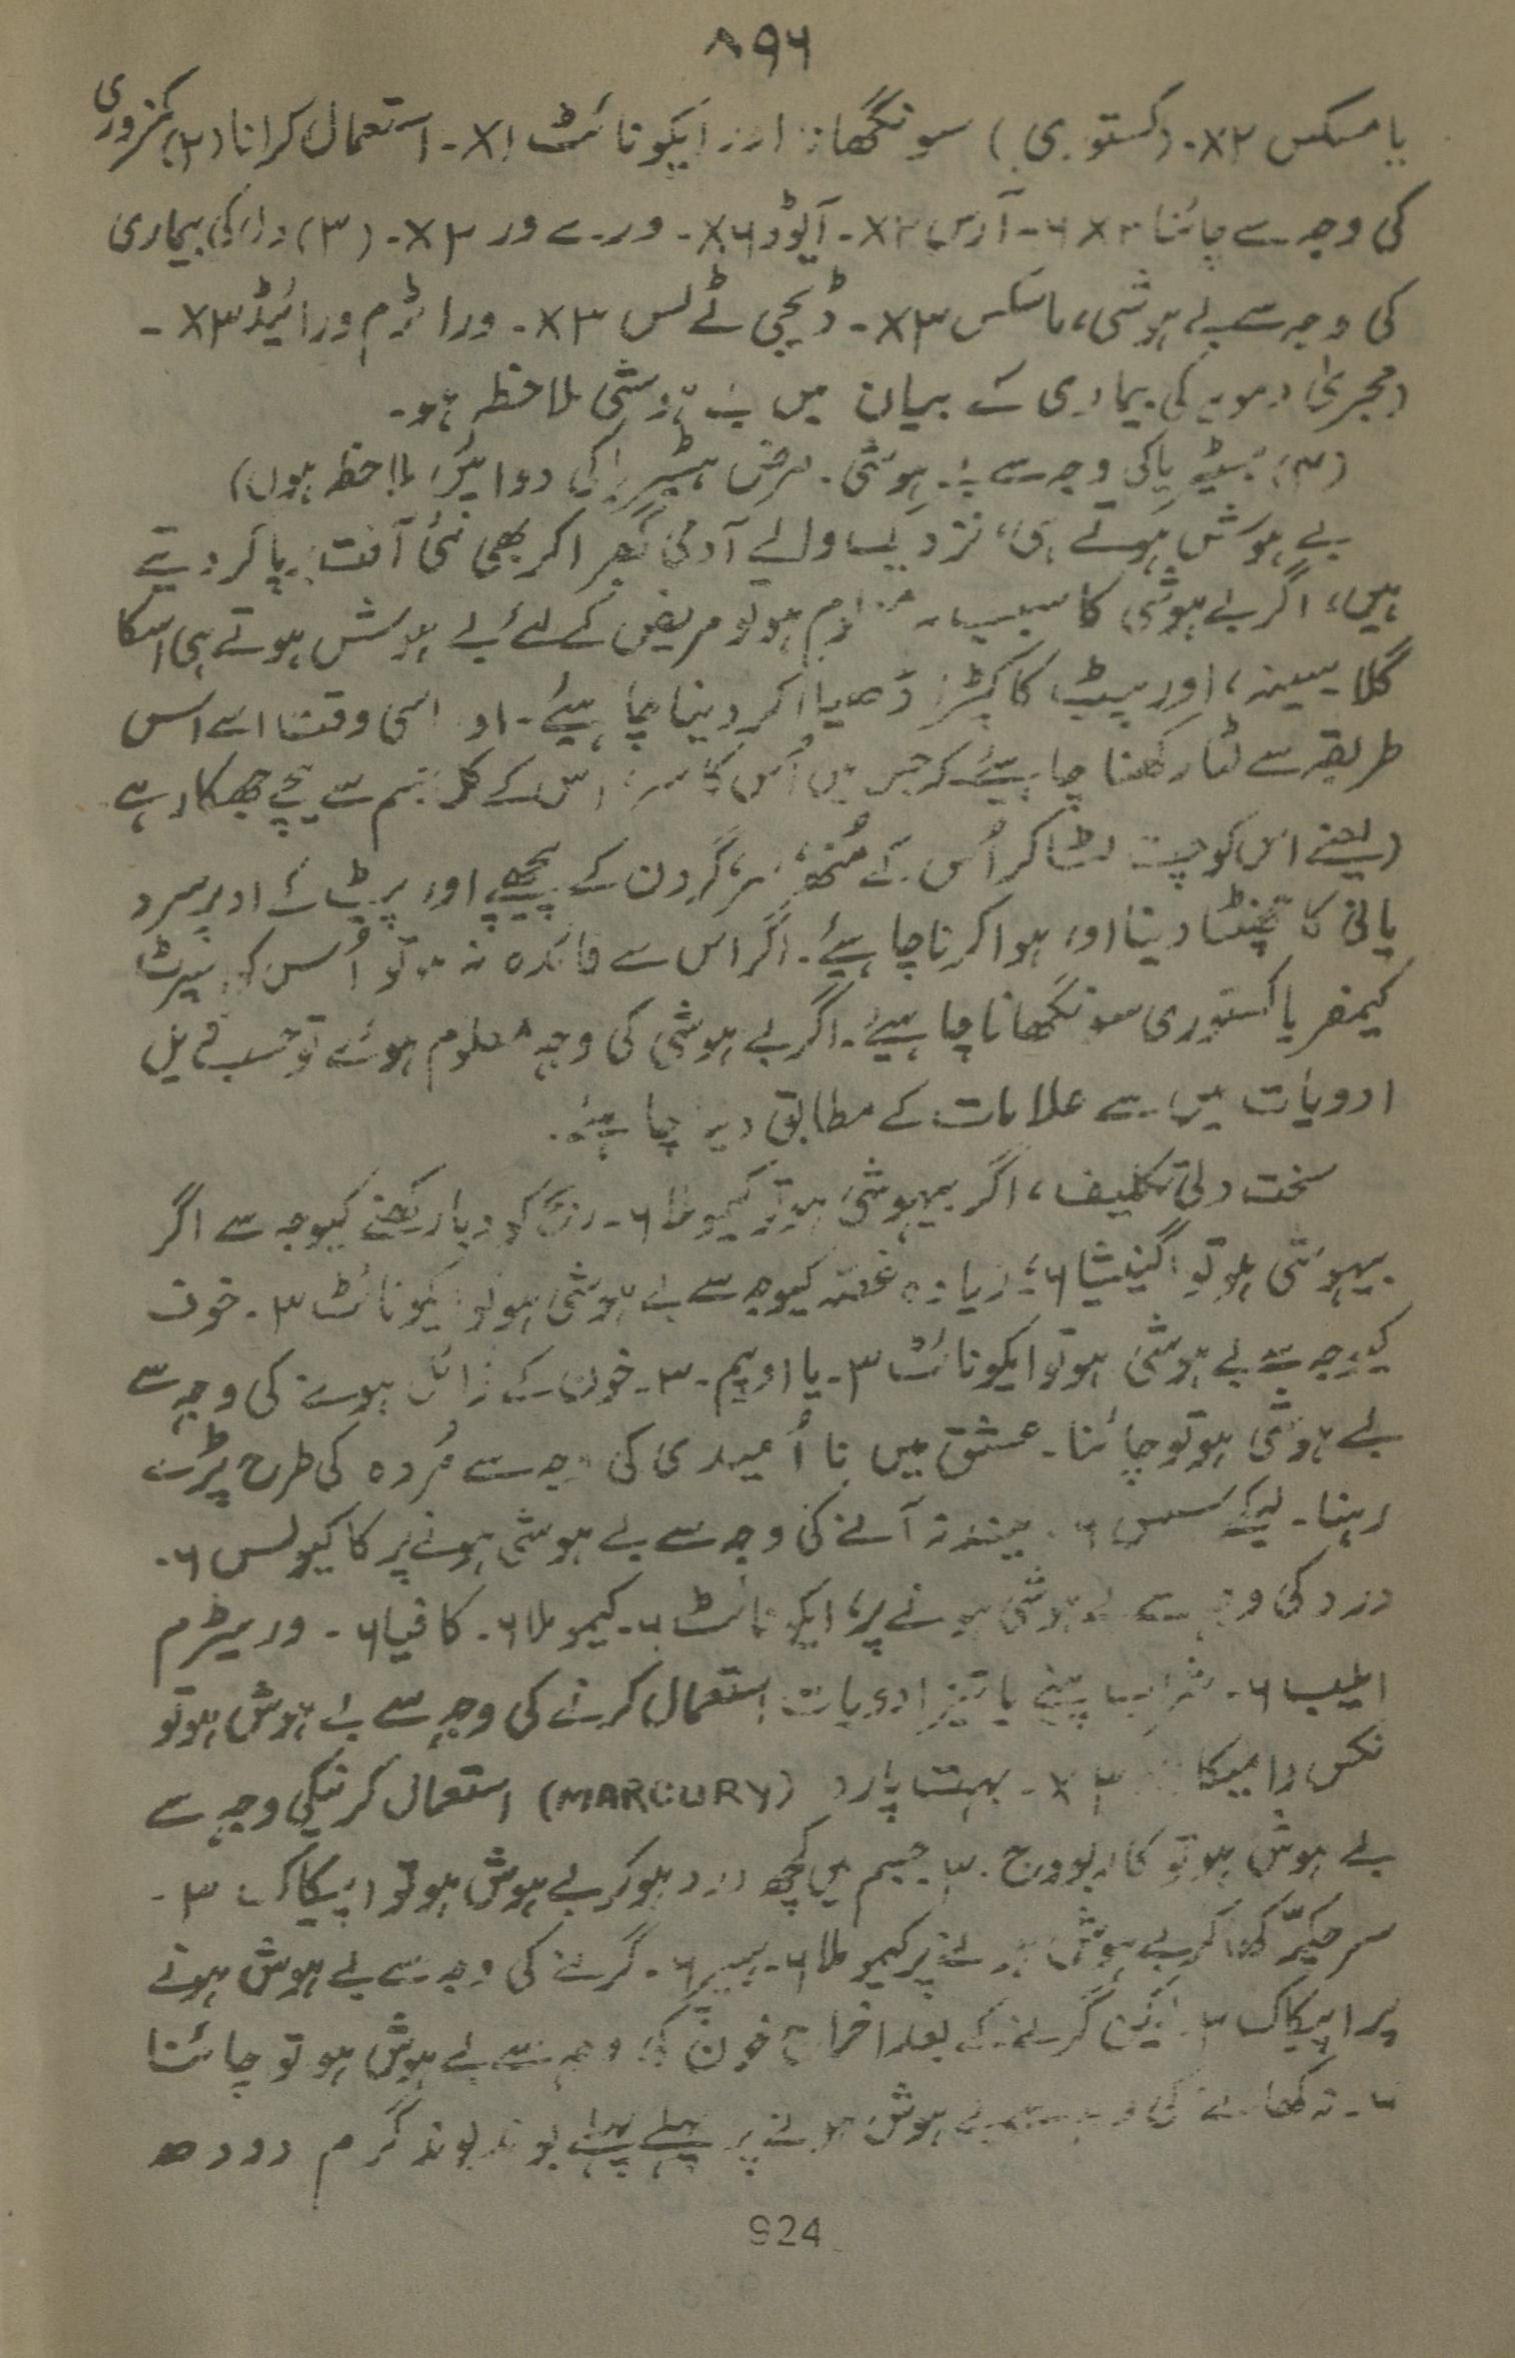 ۸۹۶
یا مسکس ۲X۔ (کستوری) سونگھانا اور ایکونائٹ ۱X۔ استعمال کرانا (۲) کمزوری
کی وجہ سے چائنا ۶ ۔ آرس ۔ آیوڈ ۶X۔ ور ۳X۔ (۳) دل کی بیماری
کی وجہ سے بے ہوشی، ماسکس ۳X۔ ڈیجی ٹے لس ۳X۔ وراٹرم ورائیڈ ۳X۔
(مجریٰ دمویہ کی بیماری کے بیان میں بے ہوشی ملاحظہ ہو۔
(۴) ہسٹیریا کی وجہ سے بے ہوشی۔ مرض ہسٹیریا کی دوائیں ملاحظہ ہوں)
بے ہوش ہوتے ہی، نزدیک والے آدمی گھبرا کر بھی نئی آفت برپا کر دیتے
ہیں، اگر بے ہوشی کا سبب ہو تو مریض کے لئے بے ہوش ہوتے ہی اسکا
گلا سینہ، اور پیٹ کا کپڑا ڈھیلا کر دینا چاہیئے۔ اور اسی وقت اسے اس
طریقہ سے لٹا رکھنا چاہیئے کہ جس میں اُس کا سر، اس کے کل جسم سے نیچے جھکا رہے
(یعنے اس کو چت لٹا کر اُس کے مُنھ، سر، گردن کے پیچھے اور پیٹ کے اوپر سرد
پانی کا چھینٹا دینا اور ہوا کرنا چاہیئے۔ اگر اس سے فائدہ نہ ہو تو اُس کو اسپرٹ
کیمفر یا کستوری سونگھانا چاہیئے۔ اگر بے ہوشی کی وجہ معلوم ہوئے تو حسب ذیل
ادویات میں سے علامات کے مطابق دینا چاہئے۔
سخت دلی تکلیف، اگر بیہوشی ہو تو کیموملا ۶۔ رنج کو دبا رکھنے کیوجہ سے اگر
بیہوشی ہو تو اگنیشیا ۶، زیادہ غصہ کیوجہ سے بے ہوشی ہو تو ایکونائٹ ۳۔ خوف
کیوجہ سے بے ہوشی ہو تو ایکونائٹ ۳۔ یا اوپیم۔ ۳۔ خون کے زائل ہونے کی وجہ سے
بے ہوشی ہو تو چائنا۔ عشق میں نا اُمیدی کی وجہ سے مُردہ کی طرح پڑے
رہنا۔ لیکے سس ۶۔ نیند نہ آنے کی وجہ سے بے ہوشی ہونے پر کاکیولس ۶۔
درد کی وجہ سے بے ہوشی ہونے پر، ایکونائٹ ۶۔ کیموملا ۶۔ کافیا ۶۔ وریٹرم
ایلیب ۶۔ شراب پینے یا تیز ادویات استعمال کرنے کی وجہ سے بے ہوش ہو تو
نکس وامیکا ۳X۔ بہت پارہ (MARCURY) استعمال کرنیکی وجہ سے
بے ہوش ہو تو کاربوویج۔ ۳۔ جسم میں کچھ درد ہو کر بے ہوش ہو تو اپیکاک ۳۔
سر چکر کھا کر بے ہوش ہونے پر کیموملا ۶۔ ہیپر ۶۔ گرنے کی وجہ سے بے ہوش ہونے
پر اپیکاک ۳۔ لیکن گرنے کے بعد اخراج خون کی وجہ سے بے ہوش ہو تو چائنا
۶۔ نہ کھانے کی وجہ سے بے ہوش ہونے پر پہلے پہلے بوند بوند گرم دودھ
924